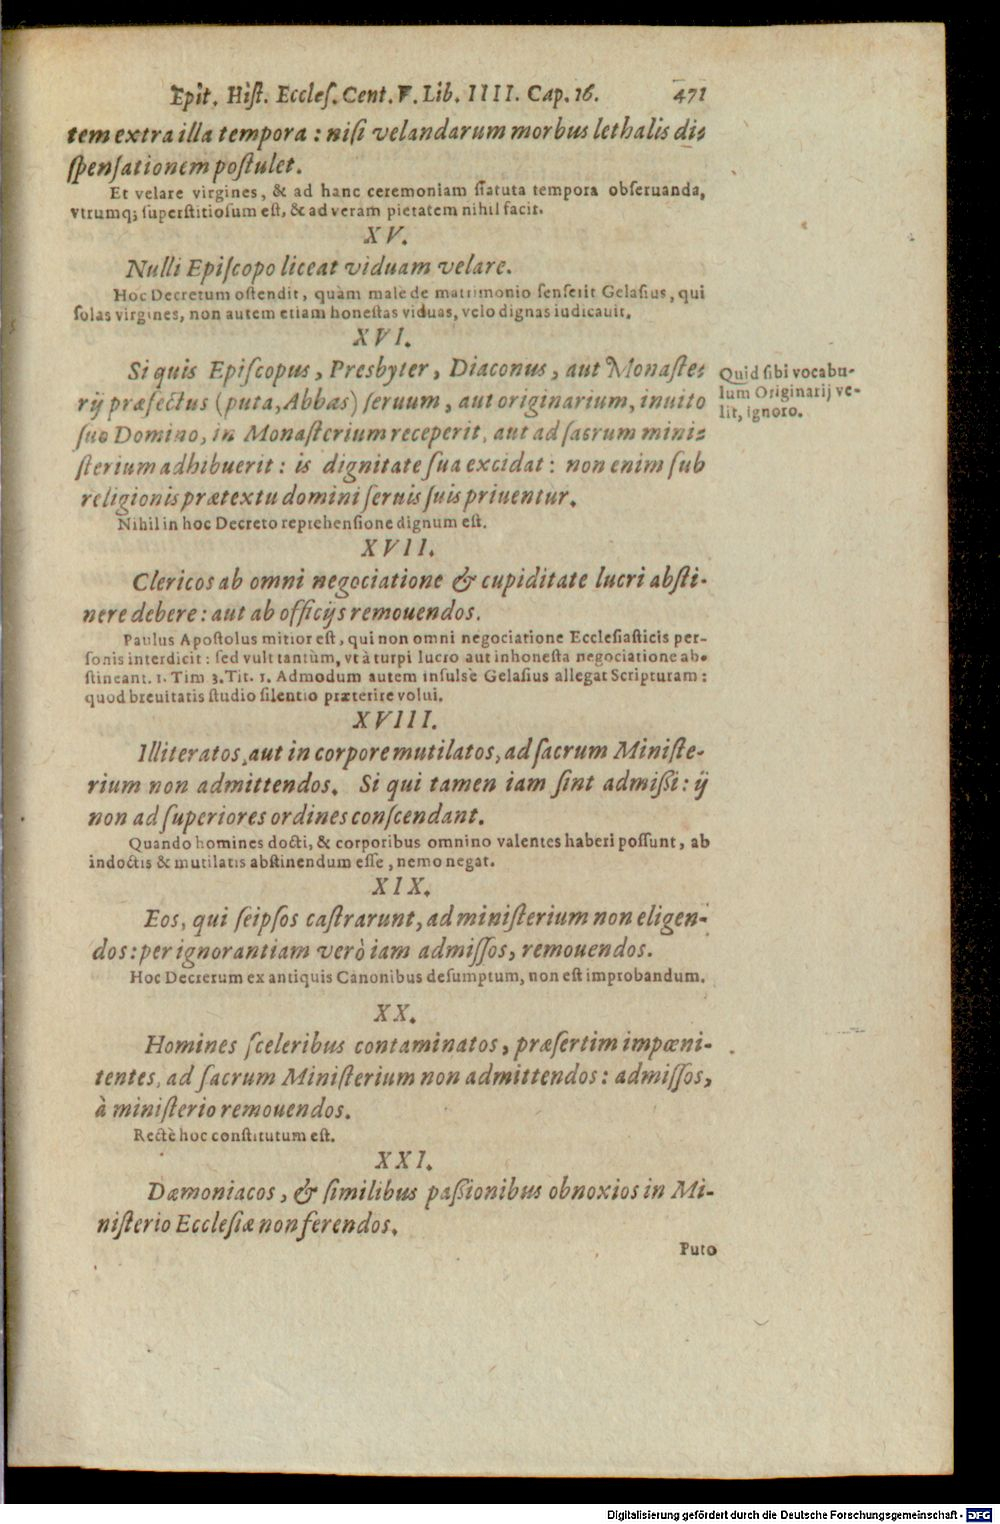 Epit. Hiſt. Eccleſ. Cent. V. Lib. IIII. Cap. 16. 471
tem extra illa tempora : niſi velandarum morbus lethalis di⸗
ſpenſationem poſtulet.
Et velare virgines, & ad hanc ceremoniam ſtatuta tempora obſeruanda,
vtrumq; ſuperſtitioſum eſt, & ad veram pietatem nihil facit.
XV.
Nulli Epiſcopo liceat viduam velare.
Hoc Decretum oſtendit, quàm male de matrimonio ſenſerit Gelaſius, qui
ſolas virgines, non autem etiam honeſtas viduas, velo dignas iudicauit.
XVI.
Si quis Epiſcopus, Presbyter, Diaconus, aut Monaſte⸗
rij præfectus (puta, Abbas) ſeruum, aut originarium, inuito
ſuo Domino, in Monaſterium receperit, aut ad ſacrum mini⸗
ſterium adhibuerit : is dignitate ſua excidat : non enim ſub
religionis prætextu domini ſeruis ſuis priuentur.
Quid ſibi vocabu-
lum Originarij ve-
lit, ignoro.
Nihil in hoc Decreto reprehenſione dignum eſt.
XVII.
Clericos ab omni negociatione & cupiditate lucri abſti-
nere debere : aut ab officijs remouendos.
Paulus Apoſtolus mitior eſt, qui non omni negociatione Eccleſiaſticis per-
ſonis interdicit : ſed vult tantùm, vt à turpi lucro aut inhoneſta negociatione ab-
ſtineant. 1. Tim 3. Tit. 1. Admodum autem inſulsè Gelaſius allegat Scripturam :
quod breuitatis ſtudio ſilentio præterire volui.
XVIII.
Illiteratos, aut in corpore mutilatos, ad ſacrum Miniſte-
rium non admittendos. Si qui tamen iam ſint admißi : ij
non ad ſuperiores ordines conſcendant.
Quando homines docti, & corporibus omnino valentes haberi poſſunt, ab
indoctis & mutilatis abſtinendum eſſe, nemo negat.
XIX.
Eos, qui ſeipſos caſtrarunt, ad miniſterium non eligen-
dos : per ignorantiam verò iam admiſſos, remouendos.
Hoc Decretum ex antiquis Canonibus deſumptum, non eſt improbandum.
XX.
Homines ſceleribus contaminatos, præſertim impœni-
tentes, ad ſacrum Miniſterium non admittendos : admiſſos,
à miniſterio remouendos.
Rectè hoc conſtitutum eſt.
XXI.
Dæmoniacos, & ſimilibus paßionibus obnoxios in Mi-
niſterio Eccleſiæ non ferendos.
Puto
Digitalisierung gefördert durch die Deutsche Forschungsgemeinschaft - DFG